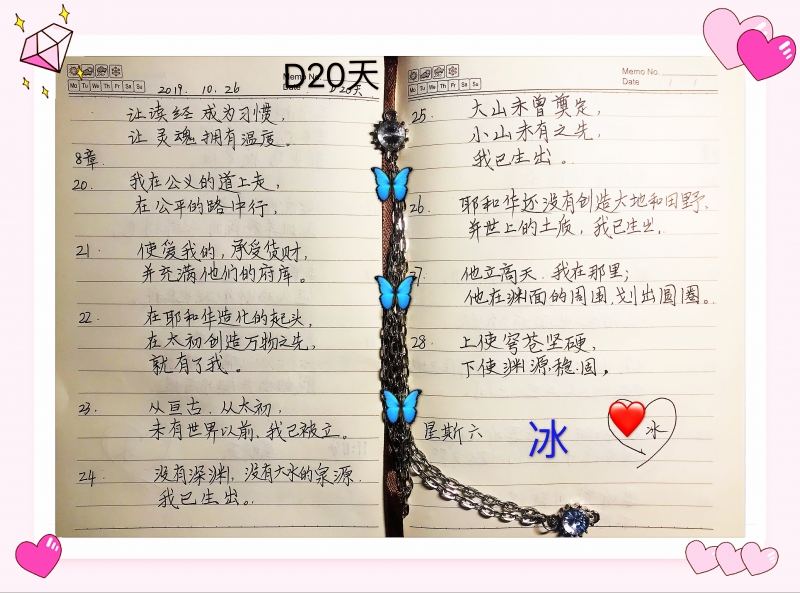 D20天
Mo Tu We Th Fr Sa Su
Memo No.
Date
2019. 10. 26
D20天
让读经成为习惯,
让灵魂拥有温度。
8章.
20. 我在公义的道上走,
在公平的路中行,
21. 使爱我的,承受货财,
并充满他们的府库。
22. 在耶和华造化的起头,
在太初创造万物之先,
就有了我。
23. 从亘古.从太初,
未有世界以前、我已被立。
24. 没有深渊,没有大水的泉源.
我已生出。
Mo Tu We Th Fr Sa Su
Memo No.
Date / /
25. 大山未曾奠定,
小山未有之先,
我已生出。
26. 耶和华还没有创造大地和田野.
并世上的土质,我已生出.
7 他立高天.我在那里;
他在渊面的周围,划出圆圈。
28. 上使穹苍坚硬,
下使渊源稳固,
星斯六
冰
冰